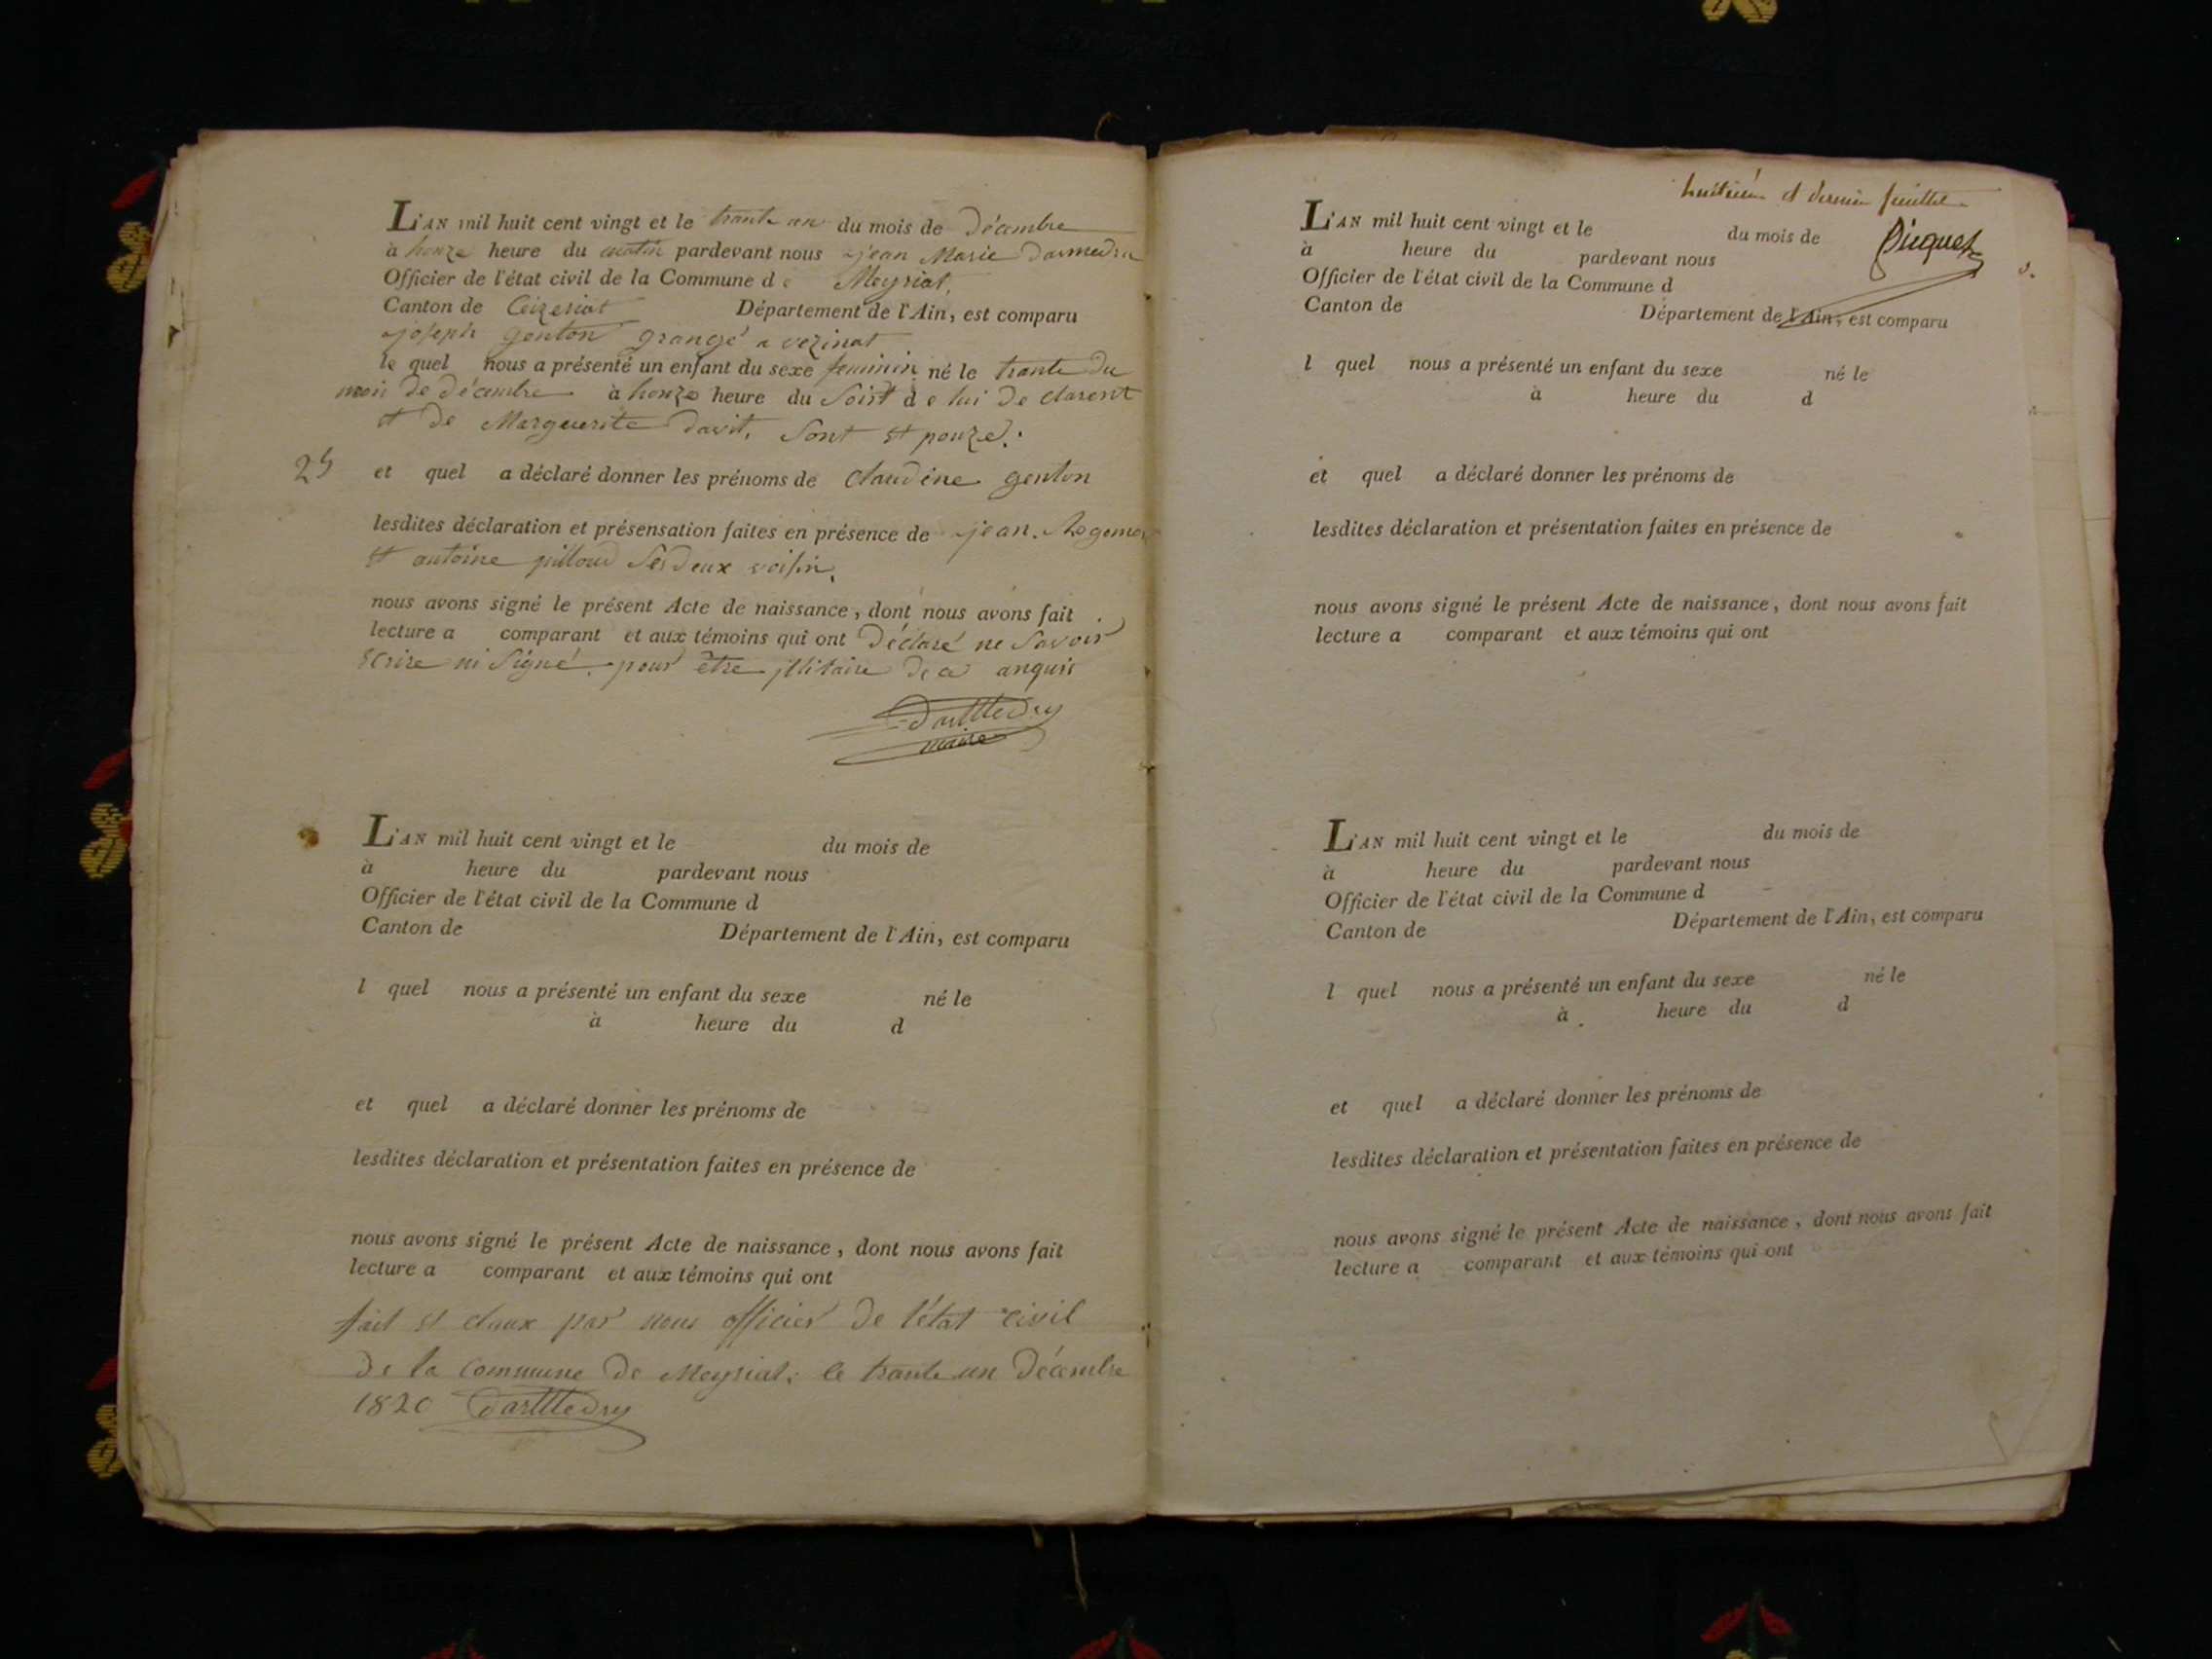 L'AN mil huit cent vingt et le trante un du mois de décembre
à honze heure du matin pardevant nous jean Marie
Officier de l'état civil de la Commune de Meyriat,
Canton de Ceizeriat Département de l'Ain, est comparu
joseph genton grangé a vezinat
le quel nous a présenté un enfant du sexe feminin né le trante du
mois de décembre à honze heure du Soir de lui declarent
et de Marguerite davit, Sont et pouze.
25 et quel a déclaré donner les prénoms de claudine genton
lesdites déclaration et présensation faites en présence de jean
et antoine pilloud Ses deux voisin,
nous avons signé le présent Acte de naissance, dont nous avons fait
lecture a comparant et aux témoins qui ont déclaré ne Savoir
Ecrire ni Signé. pour être de anquis
maire
L'AN mil huit cent vingt et le du mois de
à heure du pardevant nous
Officier de l'état civil de la Commune d
Canton de Département de l'Ain, est comparu
l quel nous a présenté un enfant du sexe né le
à heure du d
et quel a déclaré donner les prénoms de
lesdites déclaration et présentation faites en présence de
nous avons signé le présent Acte de naissance, dont nous avons fait
lecture a comparant et aux témoins qui ont
fait et claux par nous officier de l'état civil
de la commune de Meyriat. le trante un Décembre
1820
huitième et dernier feuillet
L'AN mil huit cent vingt et le du mois de Piquet
à heure du pardevant nous
Officier de l'état civil de la Commune d
Canton de Département de l'Ain, est comparu
l quel nous a présenté un enfant du sexe né le
à heure du d
et quel a déclaré donner les prénoms de
lesdites déclaration et présentation faites en présence de
nous avons signé le présent Acte de naissance, dont nous avons fait
lecture a comparant et aux témoins qui ont
L'AN mil huit cent vingt et le du mois de
à heure du pardevant nous
Officier de l'état civil de la Commune d
Canton de Département de l'Ain, est comparu
l quel nous a présenté un enfant du sexe né le
à heure du d
et quel a déclaré donner les prénoms de
lesdites déclaration et présentation faites en présence de
nous avons signé le présent Acte de naissance, dont nous avons fait
lecture a comparant et aux témoins qui ont